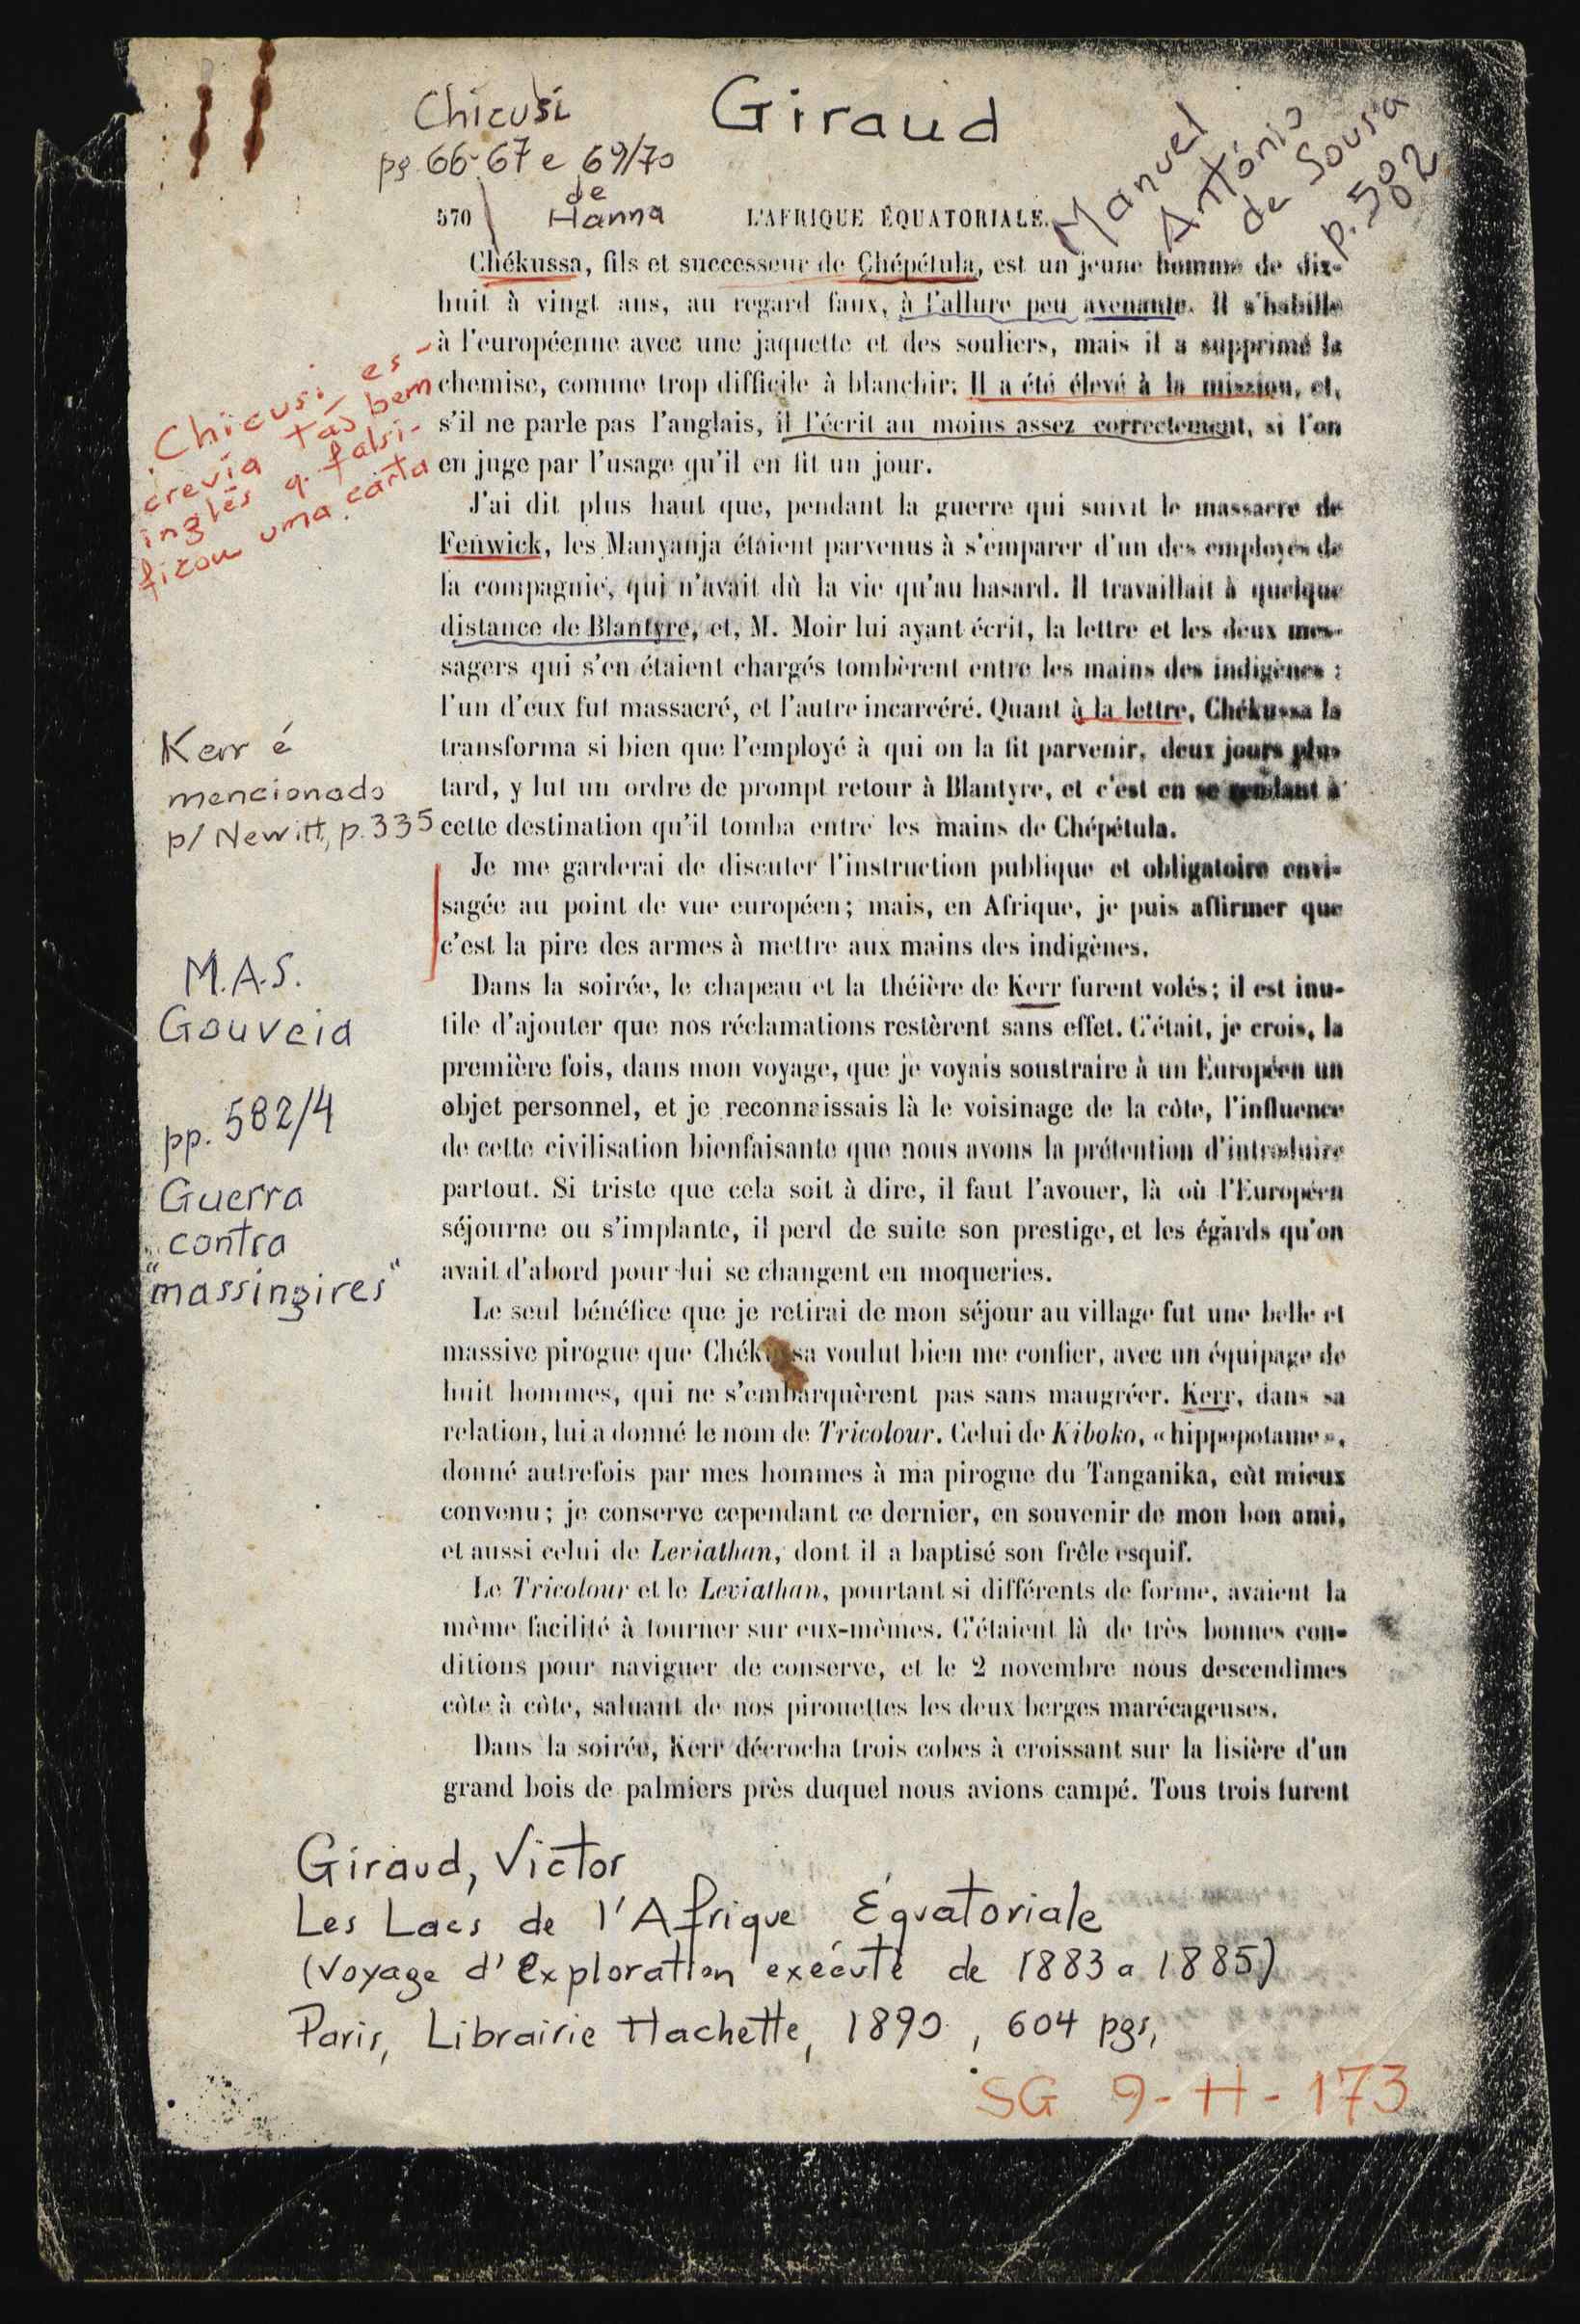 Chicusi
pg. 66-67 e 69/70
de
Hanna
Giraud
Manuel
António
de Sousa
570
L'AFRIQUE ÉQUATORIALE.
Chékussa, fils et successeur de Chépétula, est un jeune homme de dix-
huit à vingt ans, au regard faux, à l'allure peu avenante. Il s'habille
à l'européenne avec une jaquette et des souliers, mais il a supprimé la
chemise, comme trop difficile à blanchir. Il a été élevé à la mission, et,
s'il ne parle pas l'anglais, il l'écrit au moins assez correctement, si l'on
en juge par l'usage qu'il en fit un jour.
J'ai dit plus haut que, pendant la guerre qui suivit le massacre de
Fenwick, les Manyanja étaient parvenus à s'emparer d'un des employés de
la compagnie, qui n'avait dû la vie qu'au hasard. Il travaillait à quelque
distance de Blantyre, et, M. Moir lui ayant écrit, la lettre et les deux mes-
sagers qui s'en étaient chargés tombèrent entre les mains des indigènes :
l'un d'eux fut massacré, et l'autre incarcéré. Quant à la lettre, Chékussa la
transforma si bien que l'employé à qui on la fit parvenir, deux jours plus
tard, y lut un ordre de prompt retour à Blantyre, et c'est en se rendant à
cette destination qu'il tomba entre les mains de Chépétula.
Je me garderai de discuter l'instruction publique et obligatoire envi-
sagée au point de vue européen; mais, en Afrique, je puis affirmer que
c'est la pire des armes à mettre aux mains des indigènes.
Dans la soirée, le chapeau et la théière de Kerr furent volés; il est inu-
tile d'ajouter que nos réclamations restèrent sans effet. C'était, je crois, la
première fois, dans mon voyage, que je voyais soustraire à un Européen un
objet personnel, et je reconnaissais là le voisinage de la côte, l'influence
de cette civilisation bienfaisante que nous avons la prétention d'introduire
partout. Si triste que cela soit à dire, il faut l'avouer, là où l'Européen
séjourne ou s'implante, il perd de suite son prestige, et les égards qu'on
avait d'abord pour lui se changent en moqueries.
Le seul bénéfice que je retirai de mon séjour au village fut une belle et
massive pirogue que Chékussa voulut bien me confier, avec un équipage de
huit hommes, qui ne s'embarquèrent pas sans maugréer. Kerr, dans sa
relation, lui a donné le nom de Tricolour. Celui de Kiboko, « hippopotame »,
donné autrefois par mes hommes à ma pirogue du Tanganika, eût mieux
convenu; je conserve cependant ce dernier, en souvenir de mon bon ami,
et aussi celui de Leviathan, dont il a baptisé son frêle esquif.
Le Tricolour et le Leviathan, pourtant si différents de forme, avaient la
même facilité à tourner sur eux-mêmes. C'étaient là de très bonnes con-
ditions pour naviguer de conserve, et le 2 novembre nous descendîmes
côte à côte, saluant de nos pirouettes les deux berges marécageuses.
Dans la soirée, Kerr décrocha trois cobes à croissant sur la lisière d'un
grand bois de palmiers près duquel nous avions campé. Tous trois furent
Chicusi es-
crevia tão bem
inglês q. falsi-
ficou uma carta
Kerr é
mencionado
p/ Newitt, p. 335
M.A.S.
Gouveia
pp. 582/4
Guerra
contra
"massingires"
Giraud, Victor
Les Lacs de l'Afrique Équatoriale
(Voyage d'Exploration exécuté de 1883 a 1885)
Paris, Librairie Hachette, 1890, 604 pgs,
SG 9-H-173